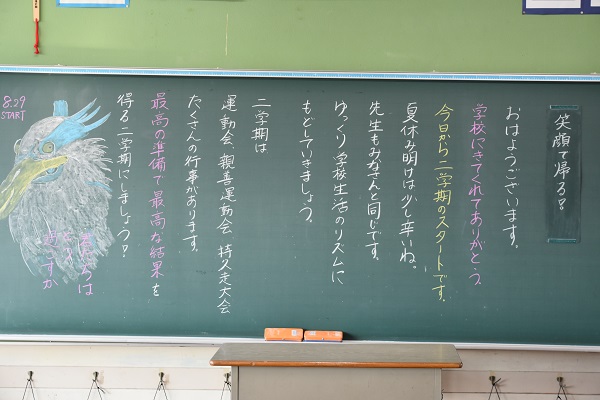 笑顔で帰る！
おはようございます。
学校にきてくれてありがとう。
今日から二学期のスタートです。
夏休み明けは少し辛いね。
先生もみなさんと同じです。
ゆっくり学校生活のリズムに
もどしていきましょう。
二学期は
運動会、親善運動会、持久走大会
たくさんの行事があります。
最高の準備で最高な結果を
得る二学期にしましょう？
8:29
START